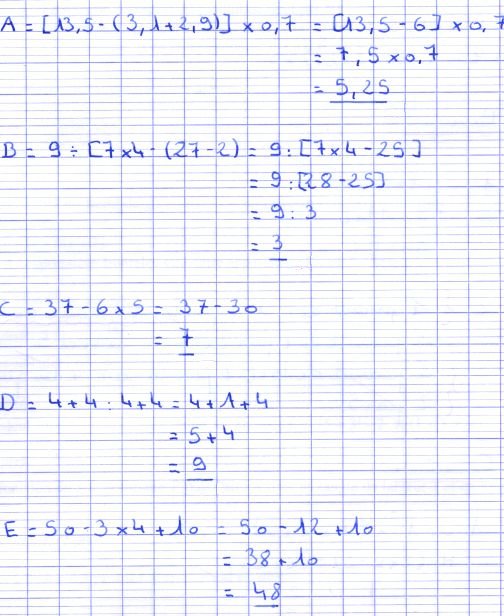 A = [13,5 - (3,1 + 2,9)] × 0,7 = [13,5 - 6] × 0,7
= 7,5 × 0,7
= 5,25
B = 9 ÷ [7×4 - (27-2) = 9 : [7×4 - 25]
= 9 : [28 - 25]
= 9 : 3
= 3
C = 37 - 6 × 5 = 37 - 30
= 7
D = 4 + 4 : 4 + 4 = 4 + 1 + 4
= 5 + 4
= 9
E = 50 - 3 × 4 + 10 = 50 - 12 + 10
= 38 + 10
= 48